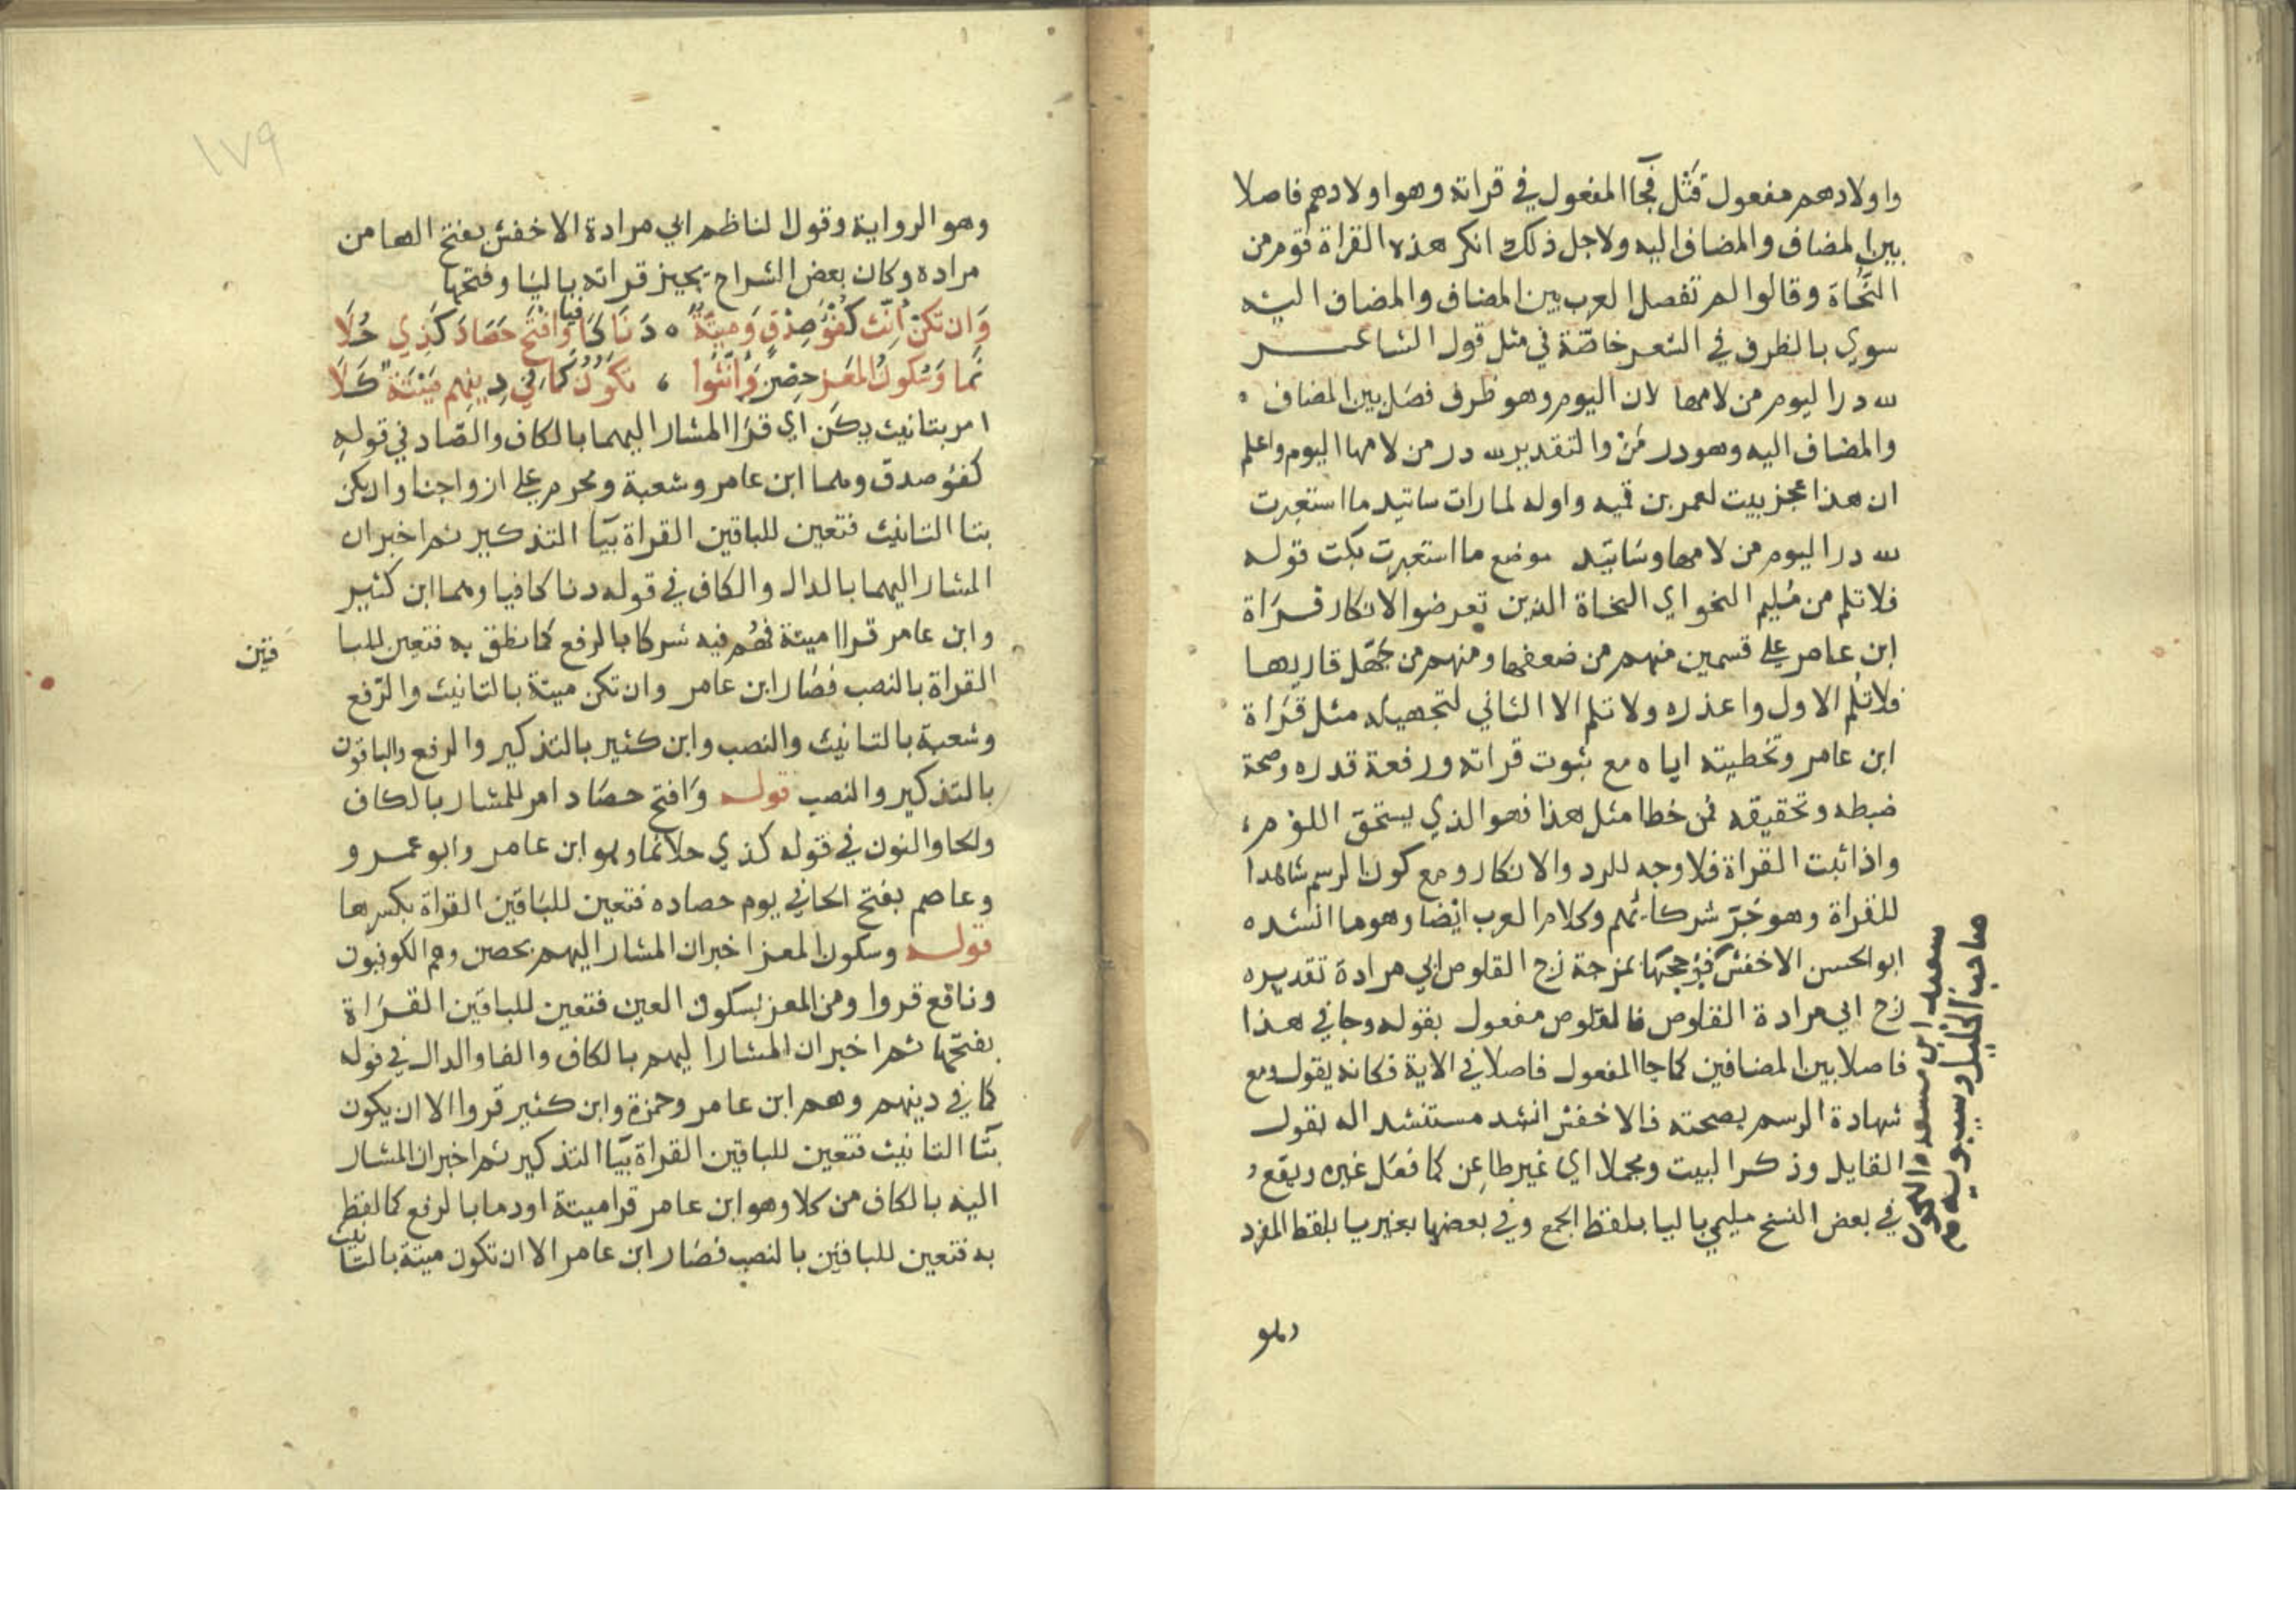 واولادهم مفعول قتل فجا المفعول في قراته وهو اولادهم فاصلا
بين المضاف والمضاف اليه ولاجل ذلك انكر هذه القراة قوم من
النحاة وقالوا لم تفصل العرب بين المضاف والمضاف اليه
سوي بالظرف في الشعر خاصة في مثل قول الشاعر
لله در اليوم من لامها لان اليوم وهو ظرف فصل بين المضاف
والمضاف اليه وهو در من والتقدير لله در من لامها اليوم واعلم
ان هذا عجز بيت لعمر بن قميه واوله لما رات ساتيد ما استعبرت
لله در اليوم من لامها وساتيد موضع ما استعبرت بكت قوله
فلا تلم من مليم النحو اي النحاة الذين تعرضوا لانكار قراة
ابن عامر علي قسمين منهم من ضعفها ومنهم من جهل قاريها
فلا تلم الاول واعذره ولا تلم الا الثاني لتجهيله مثل قراة
ابن عامر وتخطيته اياه مع ثبوت قراته ورفعة قدره وصحة
ضبطه وتحقيقه فمن خطا مثل هذا فهو الذي يستحق اللوم
واذا ثبت القراة فلا وجه للرد والانكار ومع كون الرسم شاهدا
للقراة وهو جر شركائهم وكلام العرب ايضا وهو ما انشده
ابو الحسن الاخفش فزججتها بمزجة زج القلوص ابي مرادة تقديره
زج ابي مرادة القلوص فالقلوص مفعول بقوله وجا في هذا
فاصلا بين المضافين كما جا المفعول فاصلا في الاية فكانه يقول ومع
شهادة الرسم بصحته فالاخفش انشد مستشدا له بقول
القايل وذكر البيت ومجملا اي غير طاعن كما فعل غيره ويقع
في بعض النسخ مليمي باليا بلفظ الجمع وفي بعضها بغير يا بلفظ المفرد
سعيد ابن مسعده النحوي
صاحب الخليل وسيبويه م
وهو
١٧٩
وهو الرواية وقول الناظم ابي مرادة الاخفش بفتح الها من
مراده وكان بعض الشراح يجيز قراته باليا وفتحها
وَان تكن انّث كفؤ صدق وميتة دنا كافيا وافتح حصاد كذي حُلا
نما وسكون المعز حصن وانثوا يكون كما في دينهم ميتة كلا
امر بتانيث يكن اي قرا المشار اليهما بالكاف والصاد في قوله
كفؤ صدق وهما ابن عامر وشعبة ومحرم علي ازواجنا وان يكن
بتا التانيث فتعين للباقين القراة بيا التذكير ثم اخبر ان
المشار اليهما بالدال والكاف في قوله دنا كافيا وهما ابن كثير
وابن عامر قرا ميتة فهم فيه شركا بالرفع كما نطق به فتعين للبا
قين
القراة بالنصب فصار ابن عامر وان تكن ميتة بالتانيث والرفع
وشعبة بالتانيث والنصب وابن كثير بالتذكير والرفع والباقون
بالتذكير والنصب قوله وافتح حصاد امر للمشار بالكاف
والحا والنون في قوله كذي حلا نما وهو ابن عامر وابو عمرو
وعاصم بفتح الحا في يوم حصاده فتعين للباقين القراة بكسرها
قوله وسكون المعز اخبر ان المشار اليهم بحصن وهم الكوفيون
ونافع قروا ومن المعز بسكون العين فتعين للباقين القراة
بفتحها ثم اخبر ان المشار اليهم بالكاف والفا والدال في قوله
كما في دينهم وهم ابن عامر وحمزة وابن كثير قروا الا ان يكون
بتا التانيث فتعين للباقين القراة بيا التذكير ثم اخبر ان المشار
اليه بالكاف من كلا وهو ابن عامر قرا ميتة او دما بالرفع كما لفظ
به فتعين للباقين بالنصب فصار ابن عامر الا ان تكون ميتة بالتانيث